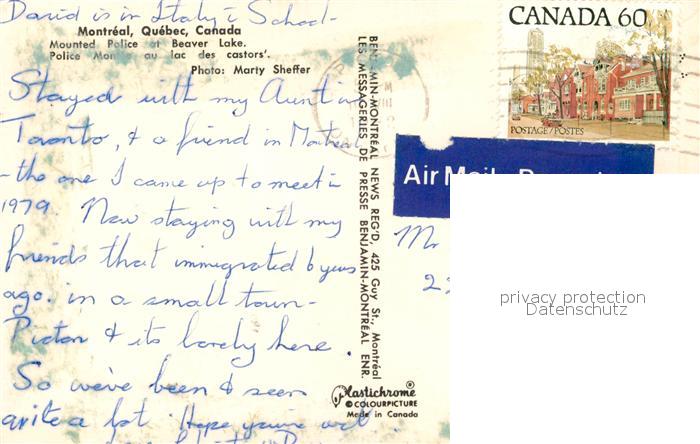 David is in Italy c̄ School-
Montréal, Québec, Canada
Mounted Police at Beaver Lake.
Police Montée au lac des castors'.
Photo: Marty Sheffer
Stayed with my Aunt in
Toronto, & a friend in Montreal
- the one I came up to meet in
1979. Now staying with my
friends that immigrated 6 years
ago. in a small town-
Picton & its lovely here.
So we've been & seen
quite a lot. Hope you're well
BENJAMIN-MONTRÉAL NEWS REG'D, 425 Guy St., Montréal
LES MESSAGERIES DE PRESSE BENJAMIN-MONTRÉAL ENR.
Plastichrome®
© COLOURPICTURE
Made in Canada
CANADA 60
POSTAGE/POSTES
Air Mail
Mr
privacy protection
Datenschutz